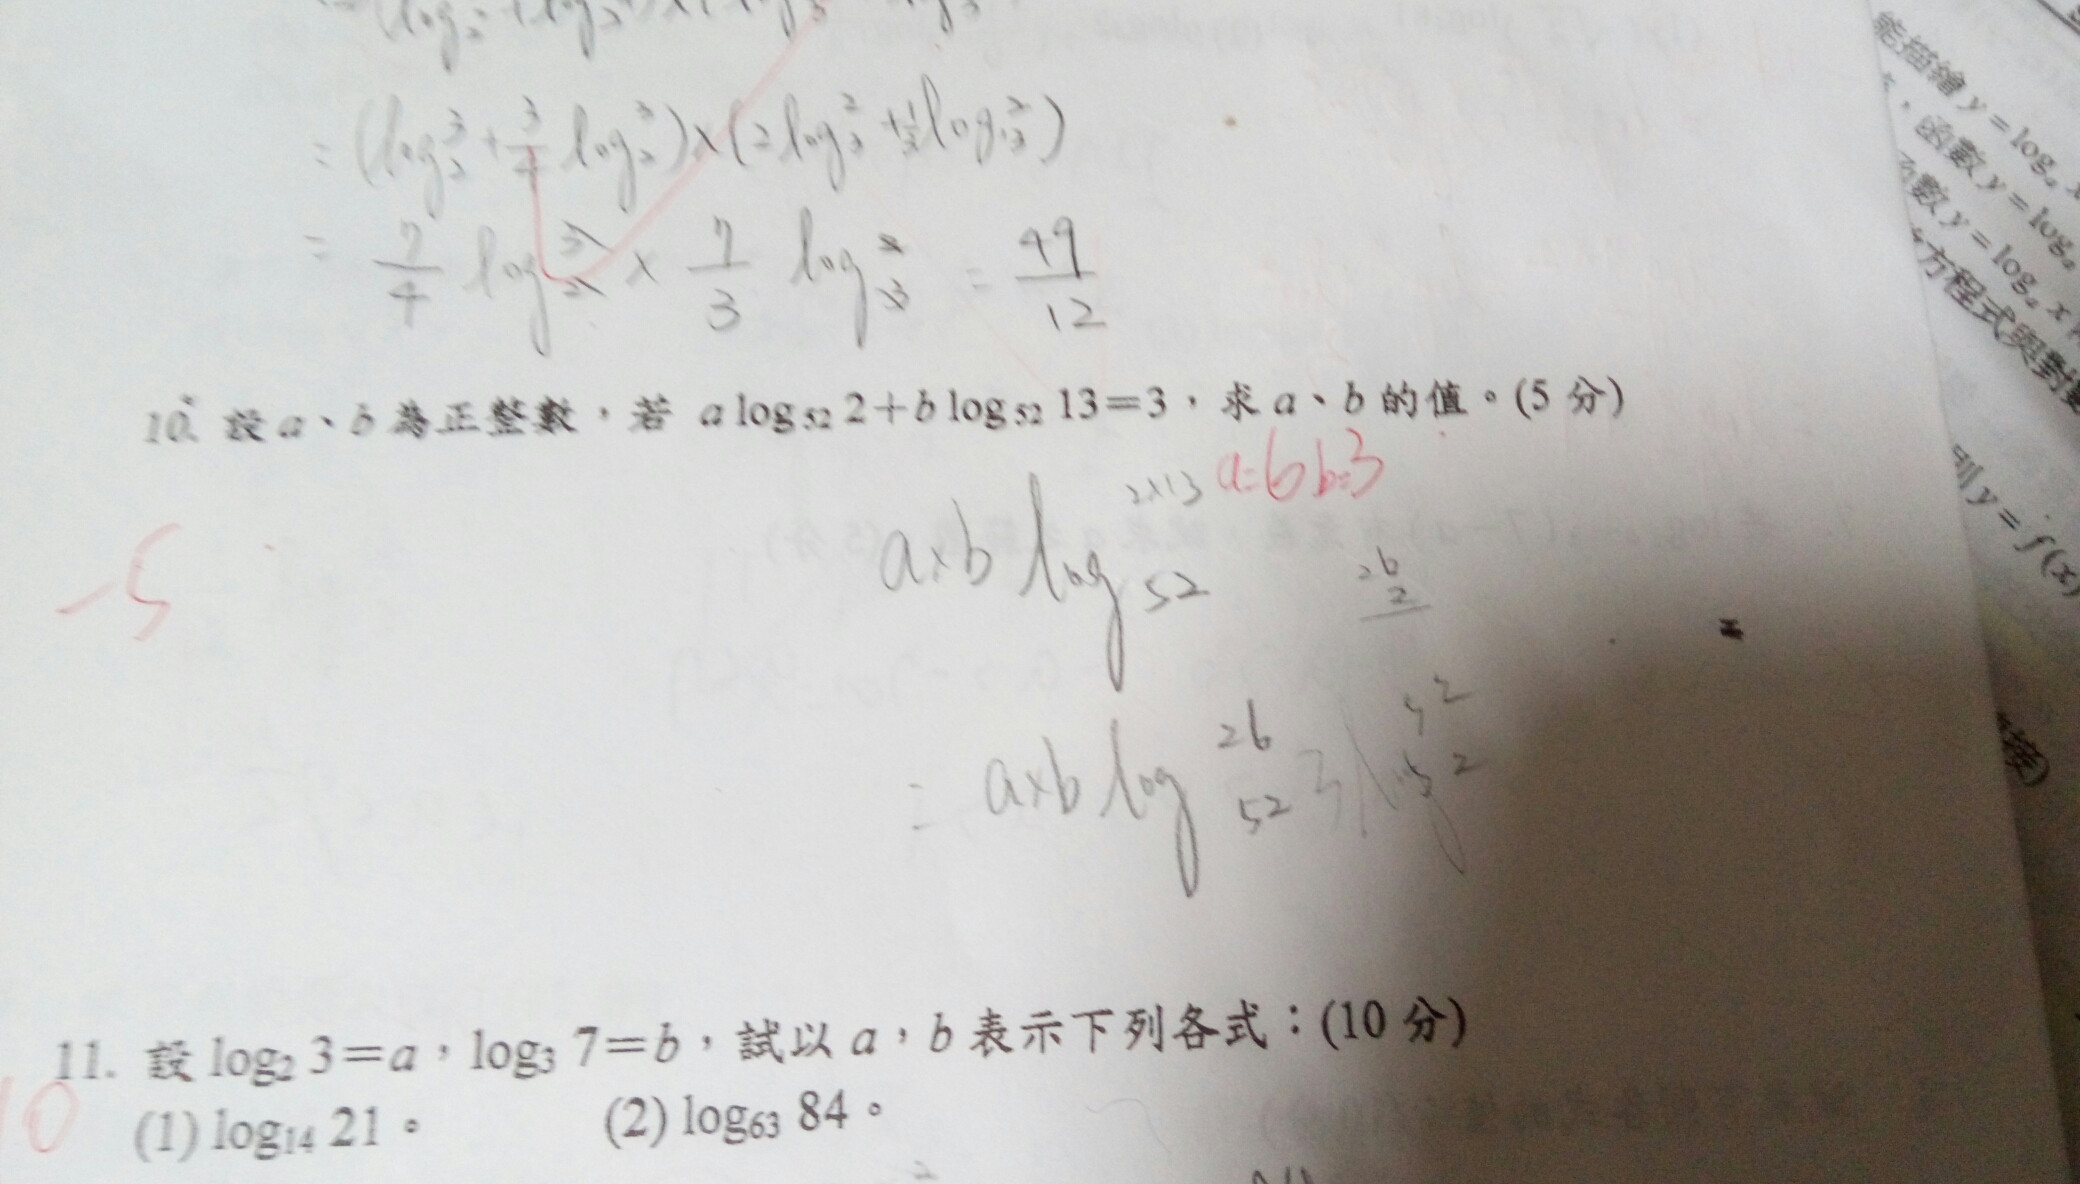 = (log₂³ + 3/4 log₂³) × (2 log₃² + 1/3 log₃²)
= 7/4 log₂³ × 7/3 log₃² = 49/12
10. 設 a、b 為正整數，若 a log₅₂ 2＋b log₅₂ 13＝3，求 a、b 的值。(5 分)
a=6 b=3
a×b log₅₂ 2×13
-5
26
2
= a×b log₅₂ 26
11. 設 log₂ 3＝a，log₃ 7＝b，試以 a，b 表示下列各式：(10 分)
10
(1) log₁₄ 21。 (2) log₆₃ 84。
能描繪 y = logₐ x
，函數 y = logₐ
數 y = logₐ x
方程式與對數
則 y = f(x)
接)